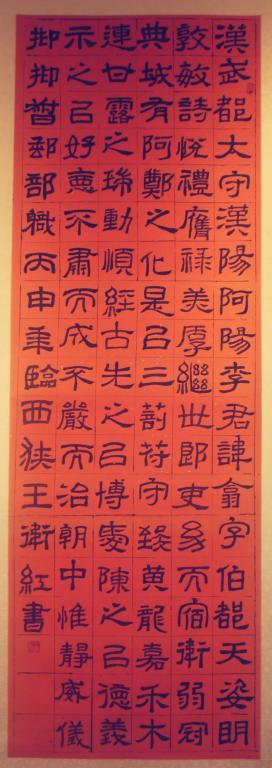 漢武都太守漢陽阿陽李君諱翕字伯都天姿明
敦敏詩悅禮膺祿美厚繼世郎吏幼而宿衛弱冠
典城有阿鄭之化是以三剖符守致黃龍嘉禾木
連甘露之瑞動順經古先之以博愛陳之以德義
示之以好惡不肅而成不嚴而治朝中惟靜威儀
抑抑督郵部職丙申年臨西狹王衛紅書